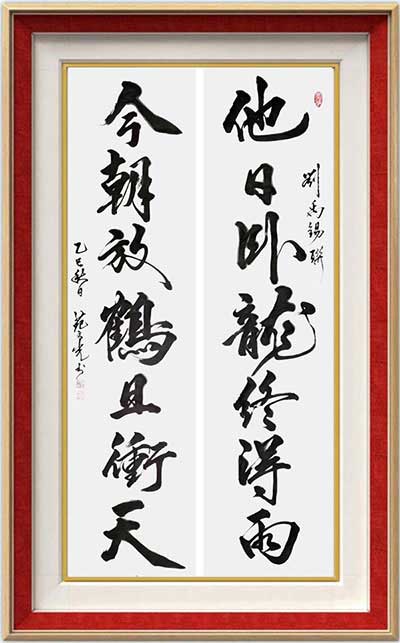 他日卧龍終得雨
劉禹錫聯
今朝放鶴且衝天
乙巳春日 范光書